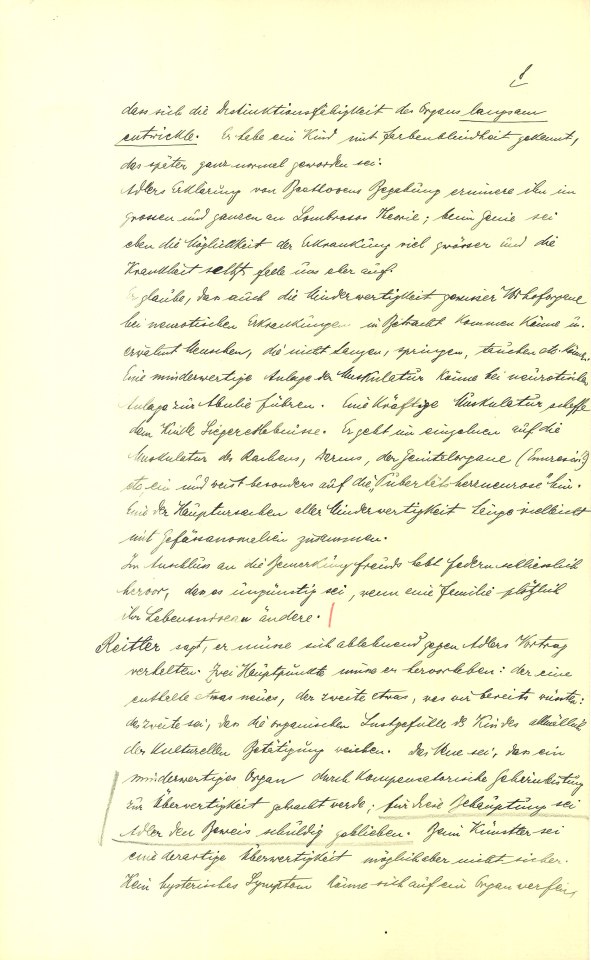 8
dass sich die Distinktionsfähigkeit des Organs langsam
entwickle. Er habe ein Kind mit Farbenblindheit gekannt,
das später ganz normal geworden sei.
Adlers Erklärung von Beethovens Begabung erinnere ihn im
grossen und ganzen an Lombrosos Theorie; beim Genie sei
eben die Möglichkeit der Erkrankung viel grösser und die
Krankheit selbst
Er glaube, dass auch die Minderwertigkeit gewisser
bei neurotischen Erkrankungen in Betracht kommen könne u.
erwähnt Menschen, die nicht tanzen, springen, tauchen etc. können.
Eine minderwertige Anlage der Muskulatur könne bei neurotischer
Anlage zur Abulie führen. Eine kräftige Muskulatur schaffe
dem Kinde Siegererlebnisse. Er geht im einzelnen auf die
Muskulatur des Rachens, Darms, der Genitalorgane (Enuresis!)
etc ein und weist besonders auf die „Pubertätsherzneurose" hin.
Eine der Hauptursachen aller Minderwertigkeit hinge vielleicht
mit Gefässanomalien zusammen.
Im Anschluss an die Bemerkung Freuds hebt Federn schliesslich
hervor, dass es ungünstig sei, wenn eine Familie plötzlich
ihr Lebensniveau ändere.
Reitler sagt, er müsse sich ablehnend gegen Adlers Vortrag
verhalten. Zwei Hauptpunkte müsse er hervorheben: der eine
enthalte etwas neues, der zweite etwas, was wir bereits wüssten:
der zweite sei, dass die organischen Lustgefühle des Kindes allmählich
der kulturellen Betätigung weichen. Das Neue sei, dass ein
minderwertiges Organ durch kompensatorische Gehirnleistung
zur Überwertigkeit gebracht werde; für diese Behauptung sei
Adler den Beweis schuldig geblieben. Beim Künstler sei
eine derartige Überwertigkeit möglich aber nicht sicher.
Kein hysterisches Symptom könne sich auf ein Organ werfen,